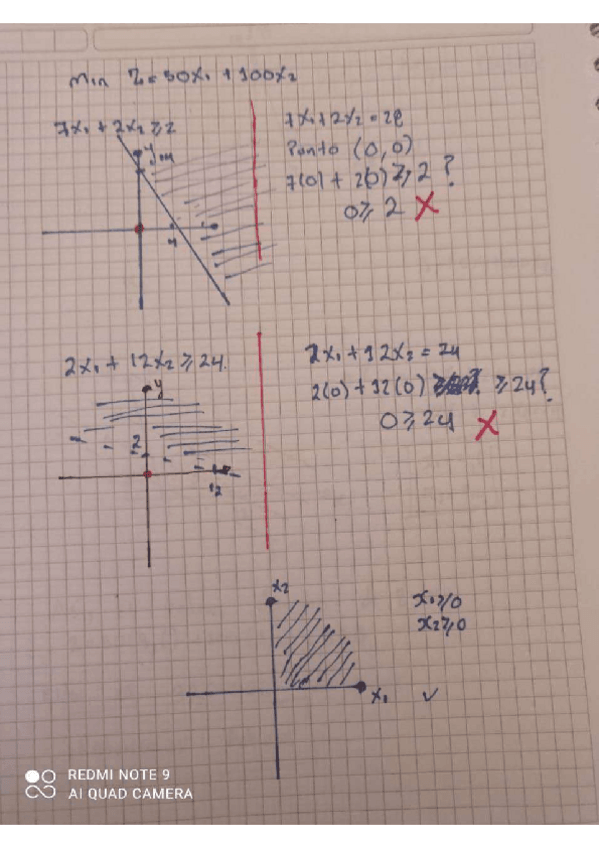 Min Z = 50x₁ + 100x₂
7x₁ + 2x₂ ≥ 2
7x₁ + 2x₂ = 28
Punto (0,0)
7(0) + 2(0) ≥ 2 ?
0 ≥ 2 X
y
14
4
2x₁ + 12x₂ ≥ 24
2x₁ + 12x₂ = 24
2(0) + 12(0) ≥ 24?
0 ≥ 24 X
y
2
12
x₂
x₁ ≥ 0
x₂ ≥ 0
x₁ ✓
REDMI NOTE 9
AI QUAD CAMERA